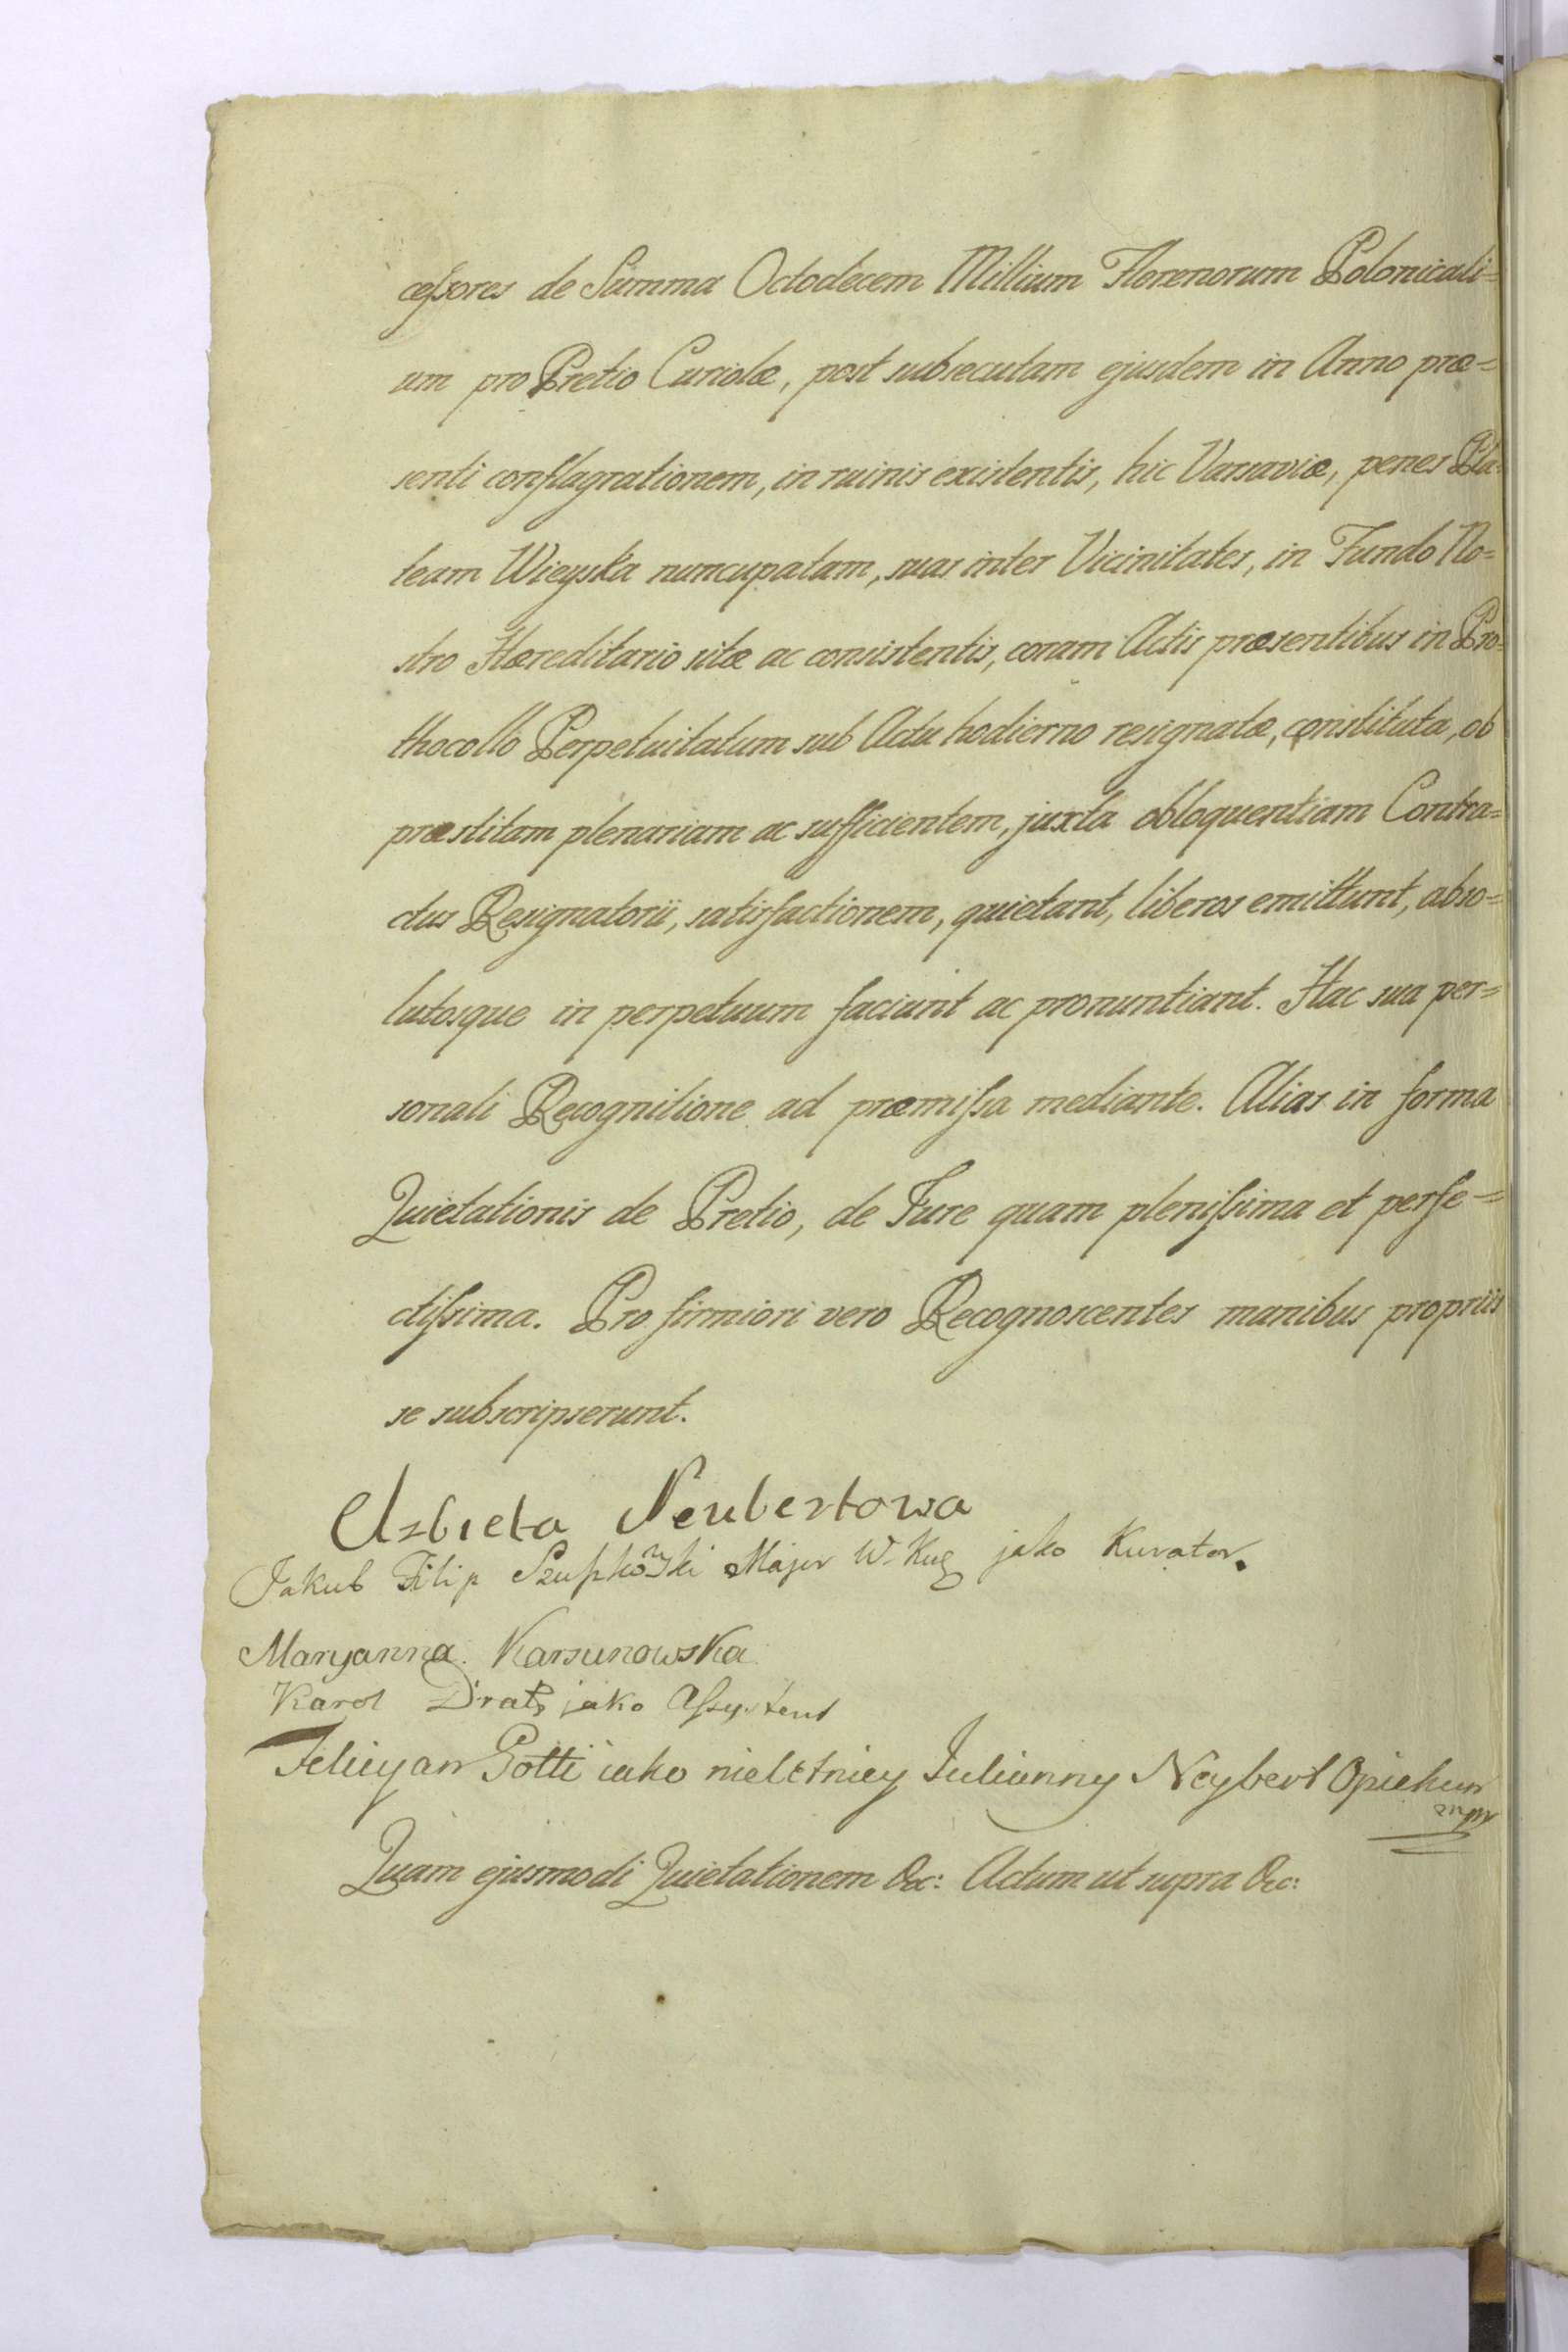 cessores de Summa Octodecem Millium Florenorum Polonicali=
um pro Pretio Curiolæ, post subsecutam ejusdem in Anno præ=
senti conflagrationem, in ruinis existentis, hic Varsaviæ, penes Pla=
team Wieyska nuncupatam, suas inter Vicinitates, in Fundo No=
stro Hæreditario sitæ ac consistentis, coram Actis præsentibus in Pro=
thocollo Perpetuitatum sub Actu hodierno resignatæ, constituta, ob
præstitam plenariam ac sufficientem, juxta obloquentiam Contra=
ctus Resignatorii, satisfactionem, quietant, liberos emittunt, abso=
lutosque in perpetuum faciunt ac pronuntiant. Hac sua per=
sonali Recognitione ad præmissa mediante. Alias in forma
Quietationis de Pretio, de Jure quam plenissima et perfe=
ctissima. Pro firmiori vero Recognoscentes manibus propriis
se subscripserunt.
Elzbieta Neubertowa
Jakub Filip Major W. jako Kurator.
Maryanna Karsunowska
Karol jako Assystent
Felicyan Gotti iako nieletniey Julianny Neybert Opiekun
mpr
Quam ejusmodi Quietationem &c: Actum ut supra &c: